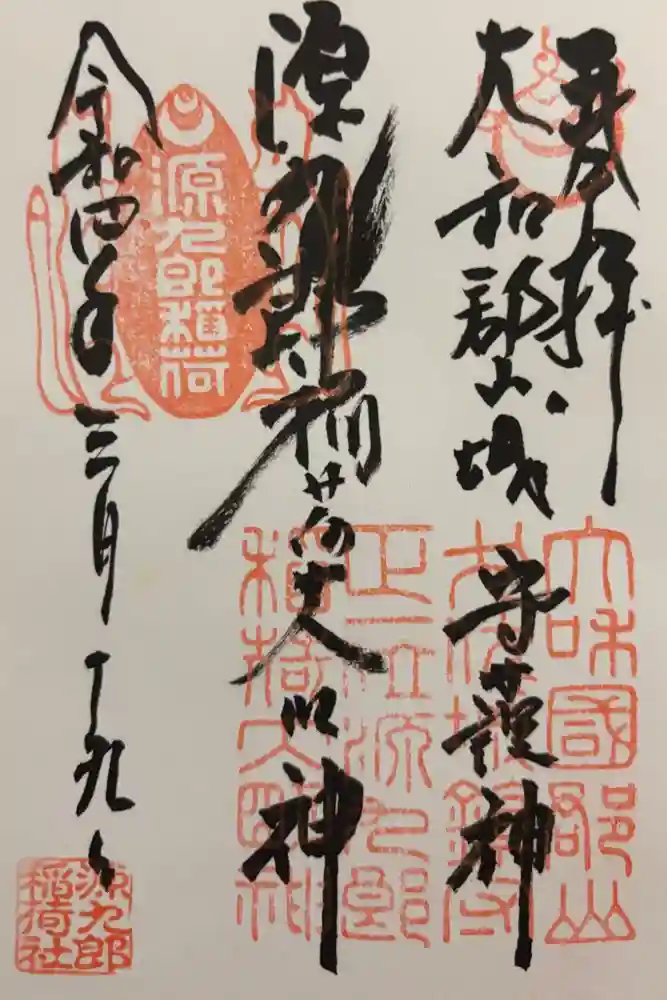 奉拝
大和郡山城守護神
源九郎稲荷大明神
令和四年三月十九日
源九郎稲荷
大和國郡山
茂後城鎮守
正一位源九郎
稲荷大明神
源九郎
稲荷社